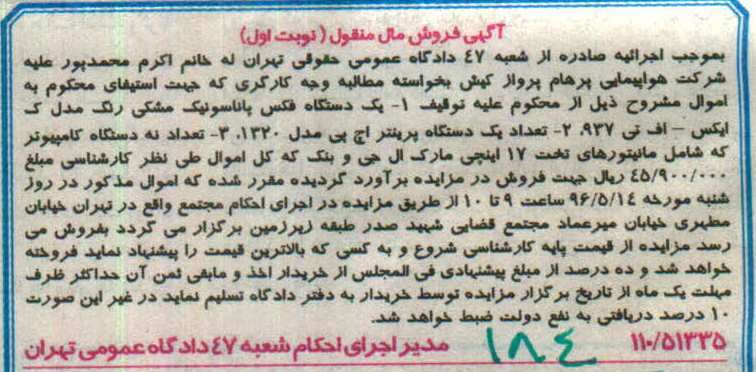 آگهی فروش مال منقول (نوبت اول)
بموجب اجرائیه صادره از شعبه ٤٧ دادگاه عمومی حقوقی تهران له خانم اکرم محمدپور علیه
شرکت هواپیمایی پرهام پرواز کیش بخواسته مطالبه وجه کارگری که جهت استیفای محکوم به
اموال مشروح ذیل از محکوم علیه توقیف ۱- یک دستگاه فکس پاناسونیک مشکی رنگ مدل ک
ایکس – اف تی ۹۳۷. ۲- تعداد یک دستگاه پرینتر اچ پی مدل ۱۳۲۰. ۳- تعداد نه دستگاه کامپیوتر
که شامل مانیتورهای تخت ۱۷ اینچی مارک ال جی و بنک که کل اموال طی نظر کارشناسی مبلغ
٤٥/۹۰۰/۰۰۰ ریال جهت فروش در مزایده برآورد گردیده مقرر شده که اموال مذکور در روز
شنبه مورخه ۹٦/٥/۱٤ ساعت ۹ تا ۱۰ از طریق مزایده در اجرای احکام مجتمع واقع در تهران خیابان
مطهری خیابان میرعماد مجتمع قضایی شهید صدر طبقه زیرزمین برگزار می گردد بفروش می
رسد مزایده از قیمت پایه کارشناسی شروع و به کسی که بالاترین قیمت را پیشنهاد نماید فروخته
خواهد شد و ده درصد از مبلغ پیشنهادی فی المجلس از خریدار اخذ و مابقی ثمن آن حداکثر ظرف
مهلت یک ماه از تاریخ برگزار مزایده توسط خریدار به دفتر دادگاه تسلیم نماید در غیر این صورت
۱۰ درصد دریافتی به نفع دولت ضبط خواهد شد.
۱۱۰/۵۱۳۳۵ ۱۸٤ مدیر اجرای احکام شعبه ٤٧ دادگاه عمومی تهران